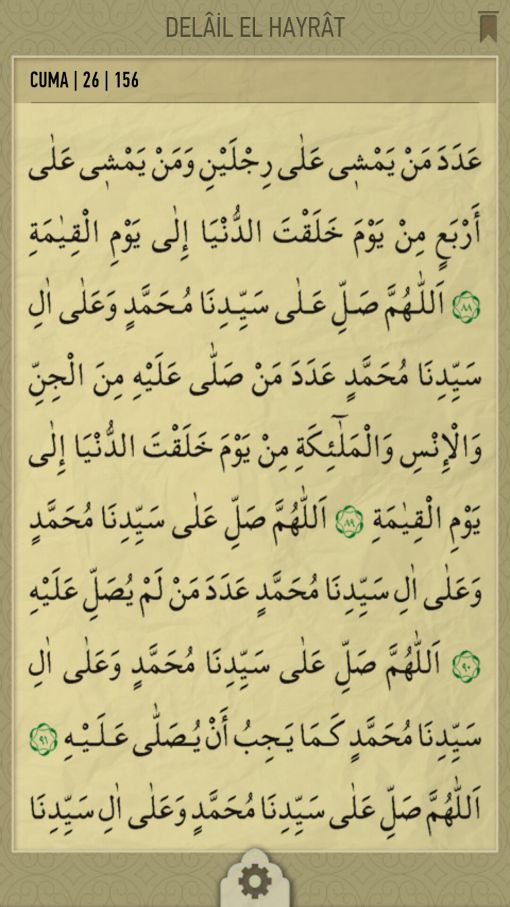 DELÂİL EL HAYRÂT
CUMA | 26 | 156
عَدَدَ مَنْ يَمْشٖى عَلٰى رِجْلَيْنِ وَمَنْ يَمْشٖى عَلٰى
أَرْبَعٍ مِنْ يَوْمَ خَلَقْتَ الدُّنْيَا إِلٰى يَوْمِ الْقِيٰمَةِ
٨٨ اَللّٰهُمَّ صَلِّ عَلٰى سَيِّدِنَا مُحَمَّدٍ وَعَلٰى اٰلِ
سَيِّدِنَا مُحَمَّدٍ عَدَدَ مَنْ صَلّٰى عَلَيْهِ مِنَ الْجِنِّ
وَالْإِنْسِ وَالْمَلٰٓئِكَةِ مِنْ يَوْمَ خَلَقْتَ الدُّنْيَا إِلٰى
يَوْمِ الْقِيٰمَةِ ٨٩ اَللّٰهُمَّ صَلِّ عَلٰى سَيِّدِنَا مُحَمَّدٍ
وَعَلٰى اٰلِ سَيِّدِنَا مُحَمَّدٍ عَدَدَ مَنْ لَمْ يُصَلِّ عَلَيْهِ
٩٠ اَللّٰهُمَّ صَلِّ عَلٰى سَيِّدِنَا مُحَمَّدٍ وَعَلٰى اٰلِ
سَيِّدِنَا مُحَمَّدٍ كَمَا يَجِبُ أَنْ يُصَلّٰى عَلَيْهِ ٩١
اَللّٰهُمَّ صَلِّ عَلٰى سَيِّدِنَا مُحَمَّدٍ وَعَلٰى اٰلِ سَيِّدِنَا